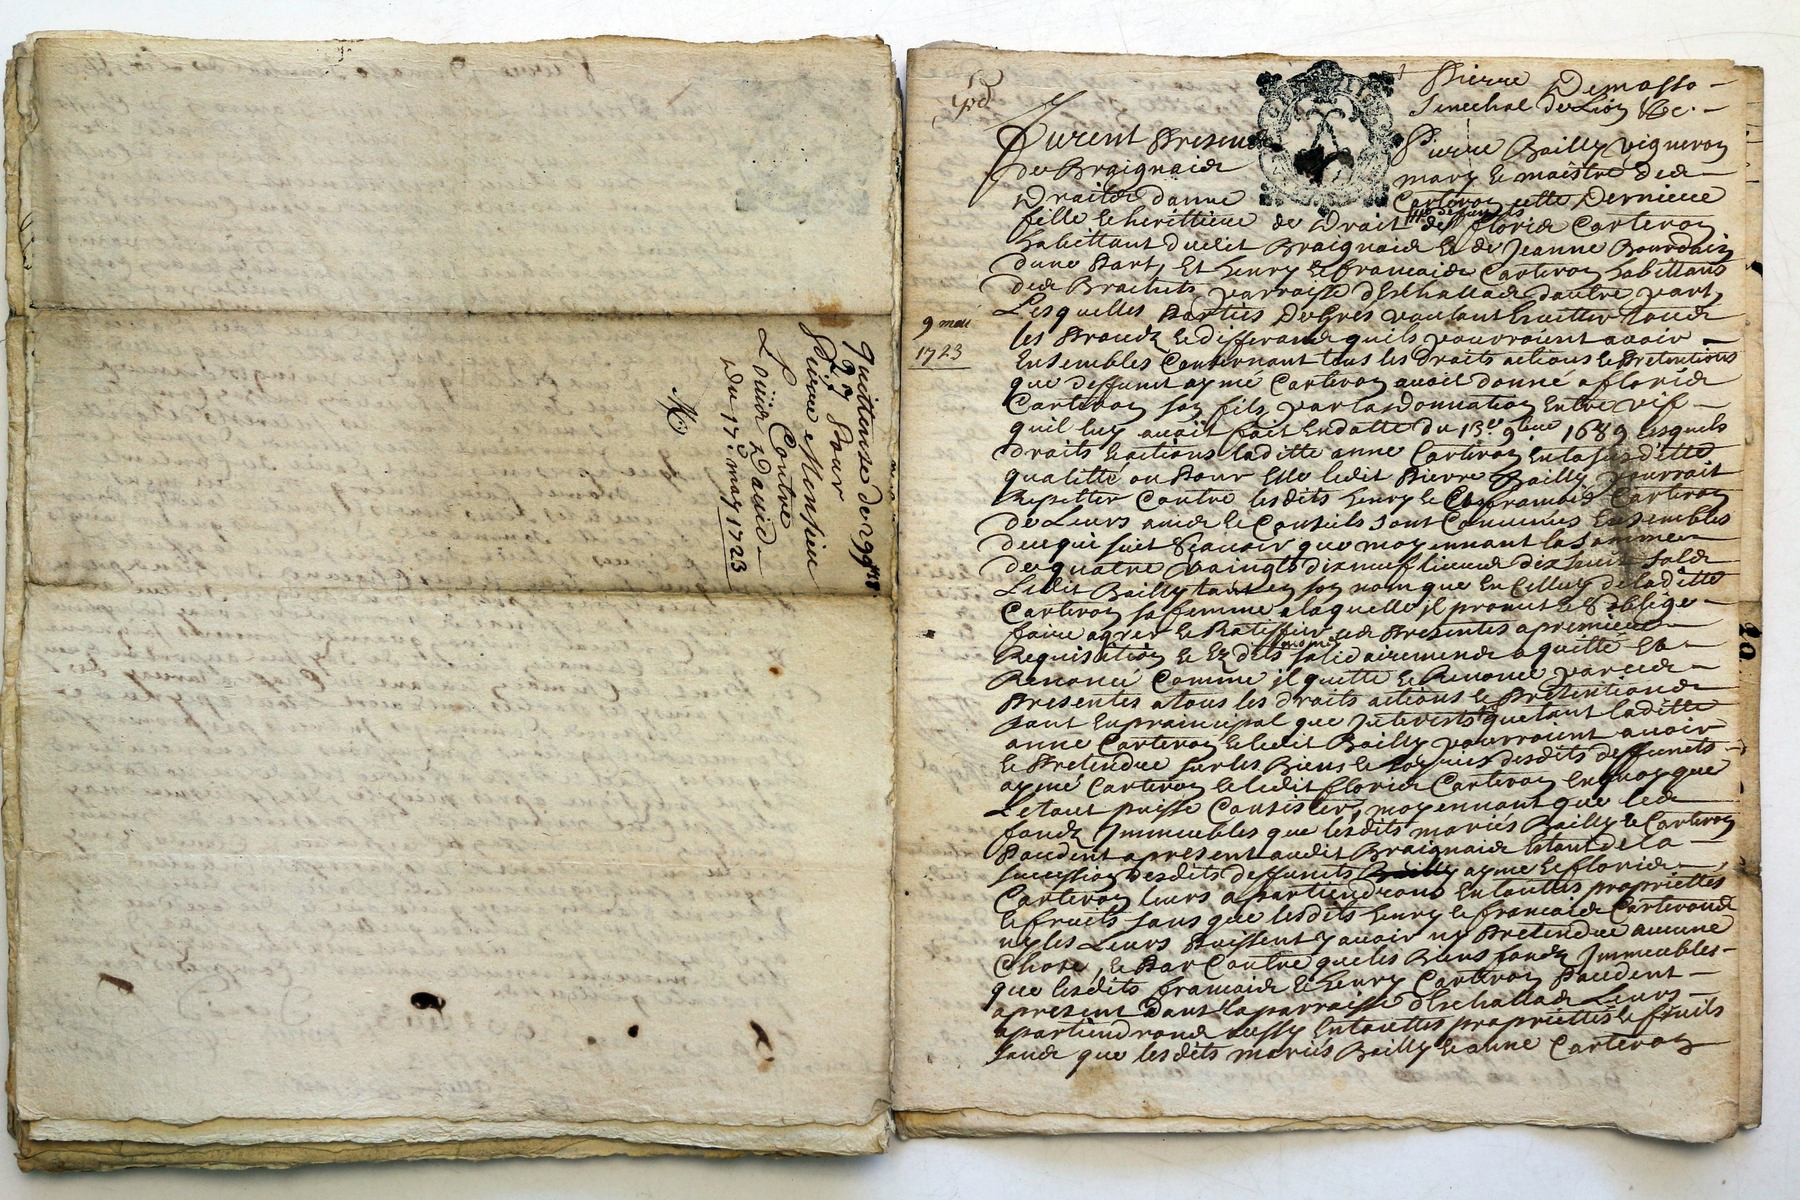 quittense de 99ᵗᵗ 18
pour
Pierre Monsieu
Contre
Louise David
Du 17ᵉ may 1723
Pierre Demasso
Senechal de Lion &c.
furent Presens
Pierre Bailly vigneron
de Braignaid
mary & maistre des
Droits danne
Carteron cette Derniere
fille & herittiere de Droit de floris Carteron
habittant dudit Braignaid & de Jeanne Bourdain
dune Part, Et henry & francois Carteron habittans
parroisse dEschallad dautre part,
9 mai
1723
Lesquelles Parties De Gres voulant Esvitter tous
les & differans quils pourroient avoir
Ensembles Consernant tous les Droits actions & Pretentions
que deffunt ayme Carteron avoit donné a floris
Carteron son fils, par la donnation Entre vif
quil luy avoit fait En datte du 13ᵉ 9bre 1689 lesquels
droits & actions laditte anne Carteron En la susditte
qualitté ou Pour Elle ledit Pierre Bailly pourroit
Repetter Contre lesdits henry & francois Carteron
de Leurs amis & Conseils sont Convenus Ensembles
de ce qui suit Scavoir que moyennant la somme
de quatre vaingts dix neuf livres dix huit sols
Ledit Bailly tant en son nom que En Celluy de laditte
Carteron sa femme a laquelle il promet & soblige
faire agreer & Ratiffier ces Presentes a premiere
Requisition & Esdits solidairement a quitté &
Renoncé Comme il quitte & Renonce par ces
Presentes a tous les droits actions & Pretentions
tant En principal que Interests que tant laditte
anne Carteron & ledit Bailly pourroient avoir
& Pretendre sur les Biens & desdits deffunts
aymé Carteron & ledit floris Carteron En quoy que
Le tout puisse Consister, moyennant que les
fonds Immeubles que lesdits mariés Bailly & Carteron
Possedent apresent audit Braignaid Estant de la
succession desdits deffunts ayme & floris
Carteron leurs apartiendront En touttes propriettes
& fruits sans que lesdits henry & francois Carterons
ny les Leurs Puissent y avoir ny Pretendre aucune
Chose, & Par Contre que les Biens fonds Immeubles
que lesdits francois & henry Carteron Possedent
apresent Dans la parroisse dEschallad Leurs
apartiendront aussy En touttes propriettes & fruits
sans que lesdits mariés Bailly & anne Carteron